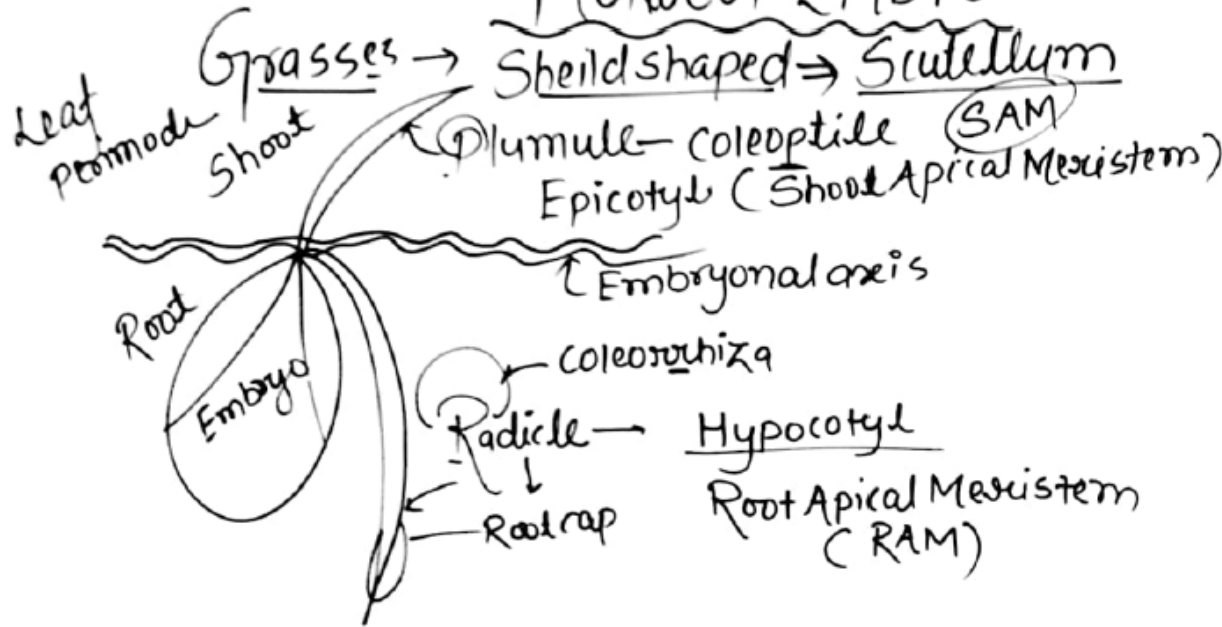 Grasses → Sheild shaped ⇒ Scutellum
Leaf
Shoot
Plumule - coleoptile SAM
Epicotyl (Shoot Apical Meristem)
Embryonal axis
Root
Coleorrhiza
Embryo
Radicle — Hypocotyl
Root Apical Meristem
Root cap
(RAM)